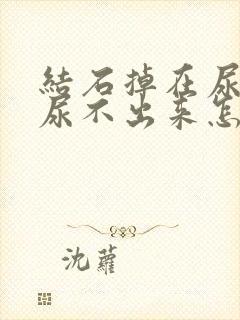 結石掉在尿
尿不出来怎
沈蘿